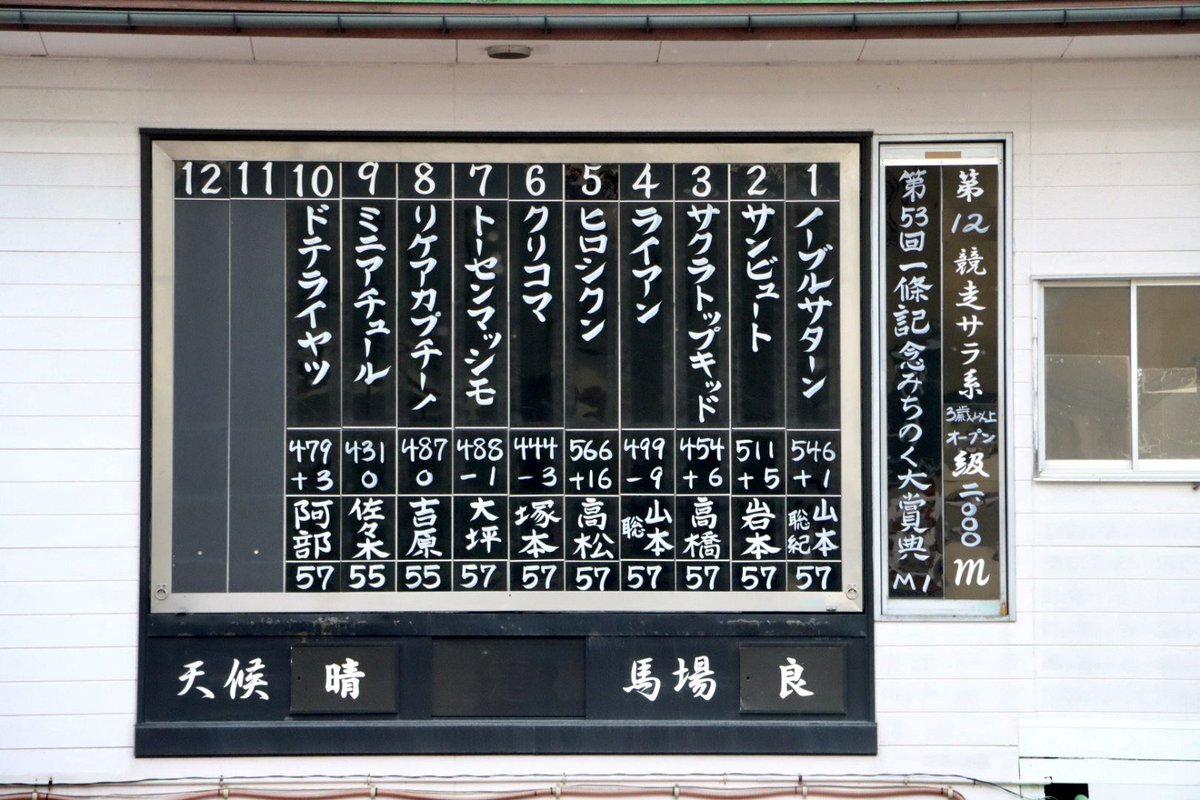 第12競走サラ系3歳以上オープン級二、000m
第53回一條記念みちのく大賞典 M1
1 ノーブルサターン 546 +1 山本聡紀 57
2 サンビュート 511 +5 岩本 57
3 サクラトップキッド 454 +6 高橋 57
4 ライアン 499 -9 山本聡 57
5 ヒロシクン 566 +16 高松 57
6 クリコマ 444 -3 塚本 57
7 トーセンマッシモ 488 -1 大坪 57
8 リケアカプチーノ 487 0 吉原 55
9 ミニアチュール 431 0 佐々木 55
10 ドテライヤツ 479 +3 阿部 57
11
12
天候 晴
馬場 良